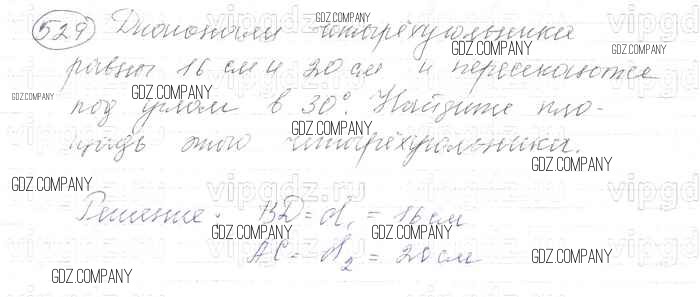 529 Диагонали четырёхугольника
равны 16 см и 20 см и пересекаются
под углом в 30°. Найдите пло-
щадь этого четырёхугольника.
Решение: BD = d₁ = 16 см
AC = d₂ = 20 см
GDZ.COMPANY
GDZ.COMPANY
GDZ.COMPANY
GDZ.COMPANY
GDZ.COMPANY
GDZ.COMPANY
GDZ.COMPANY
GDZ.COMPANY
GDZ.COMPANY
GDZ.COMPANY
GDZ.COMPANY